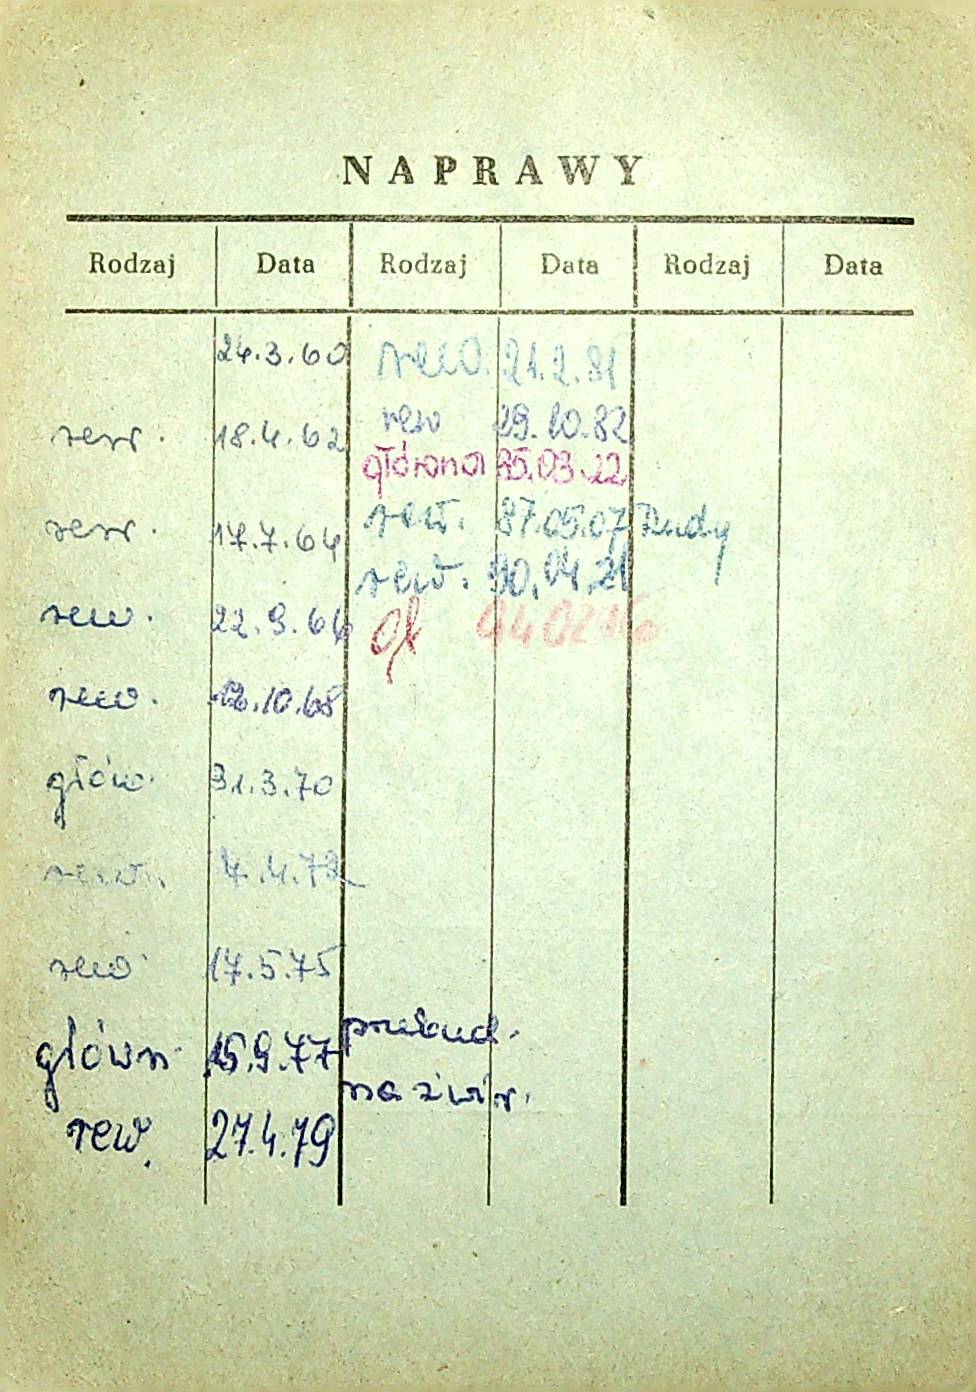 NAPRAWY
Rodzaj Data Rodzaj Data Rodzaj Data
24.3.60 rew. 21.2.81
rew 29.10.82
rew. 18.4.62
główna 85.03.22
rew. 87.05.07 Rudy
rew. 17.7.64
rew. 90.04.21
rew. 22.9.66 gł 94 02
rew. 10.68
głów. 31.3.70
rew. 4.4.72
rew. 17.5.75
główn. 15.9.77 przebud.
na żwir.
rew. 27.4.79